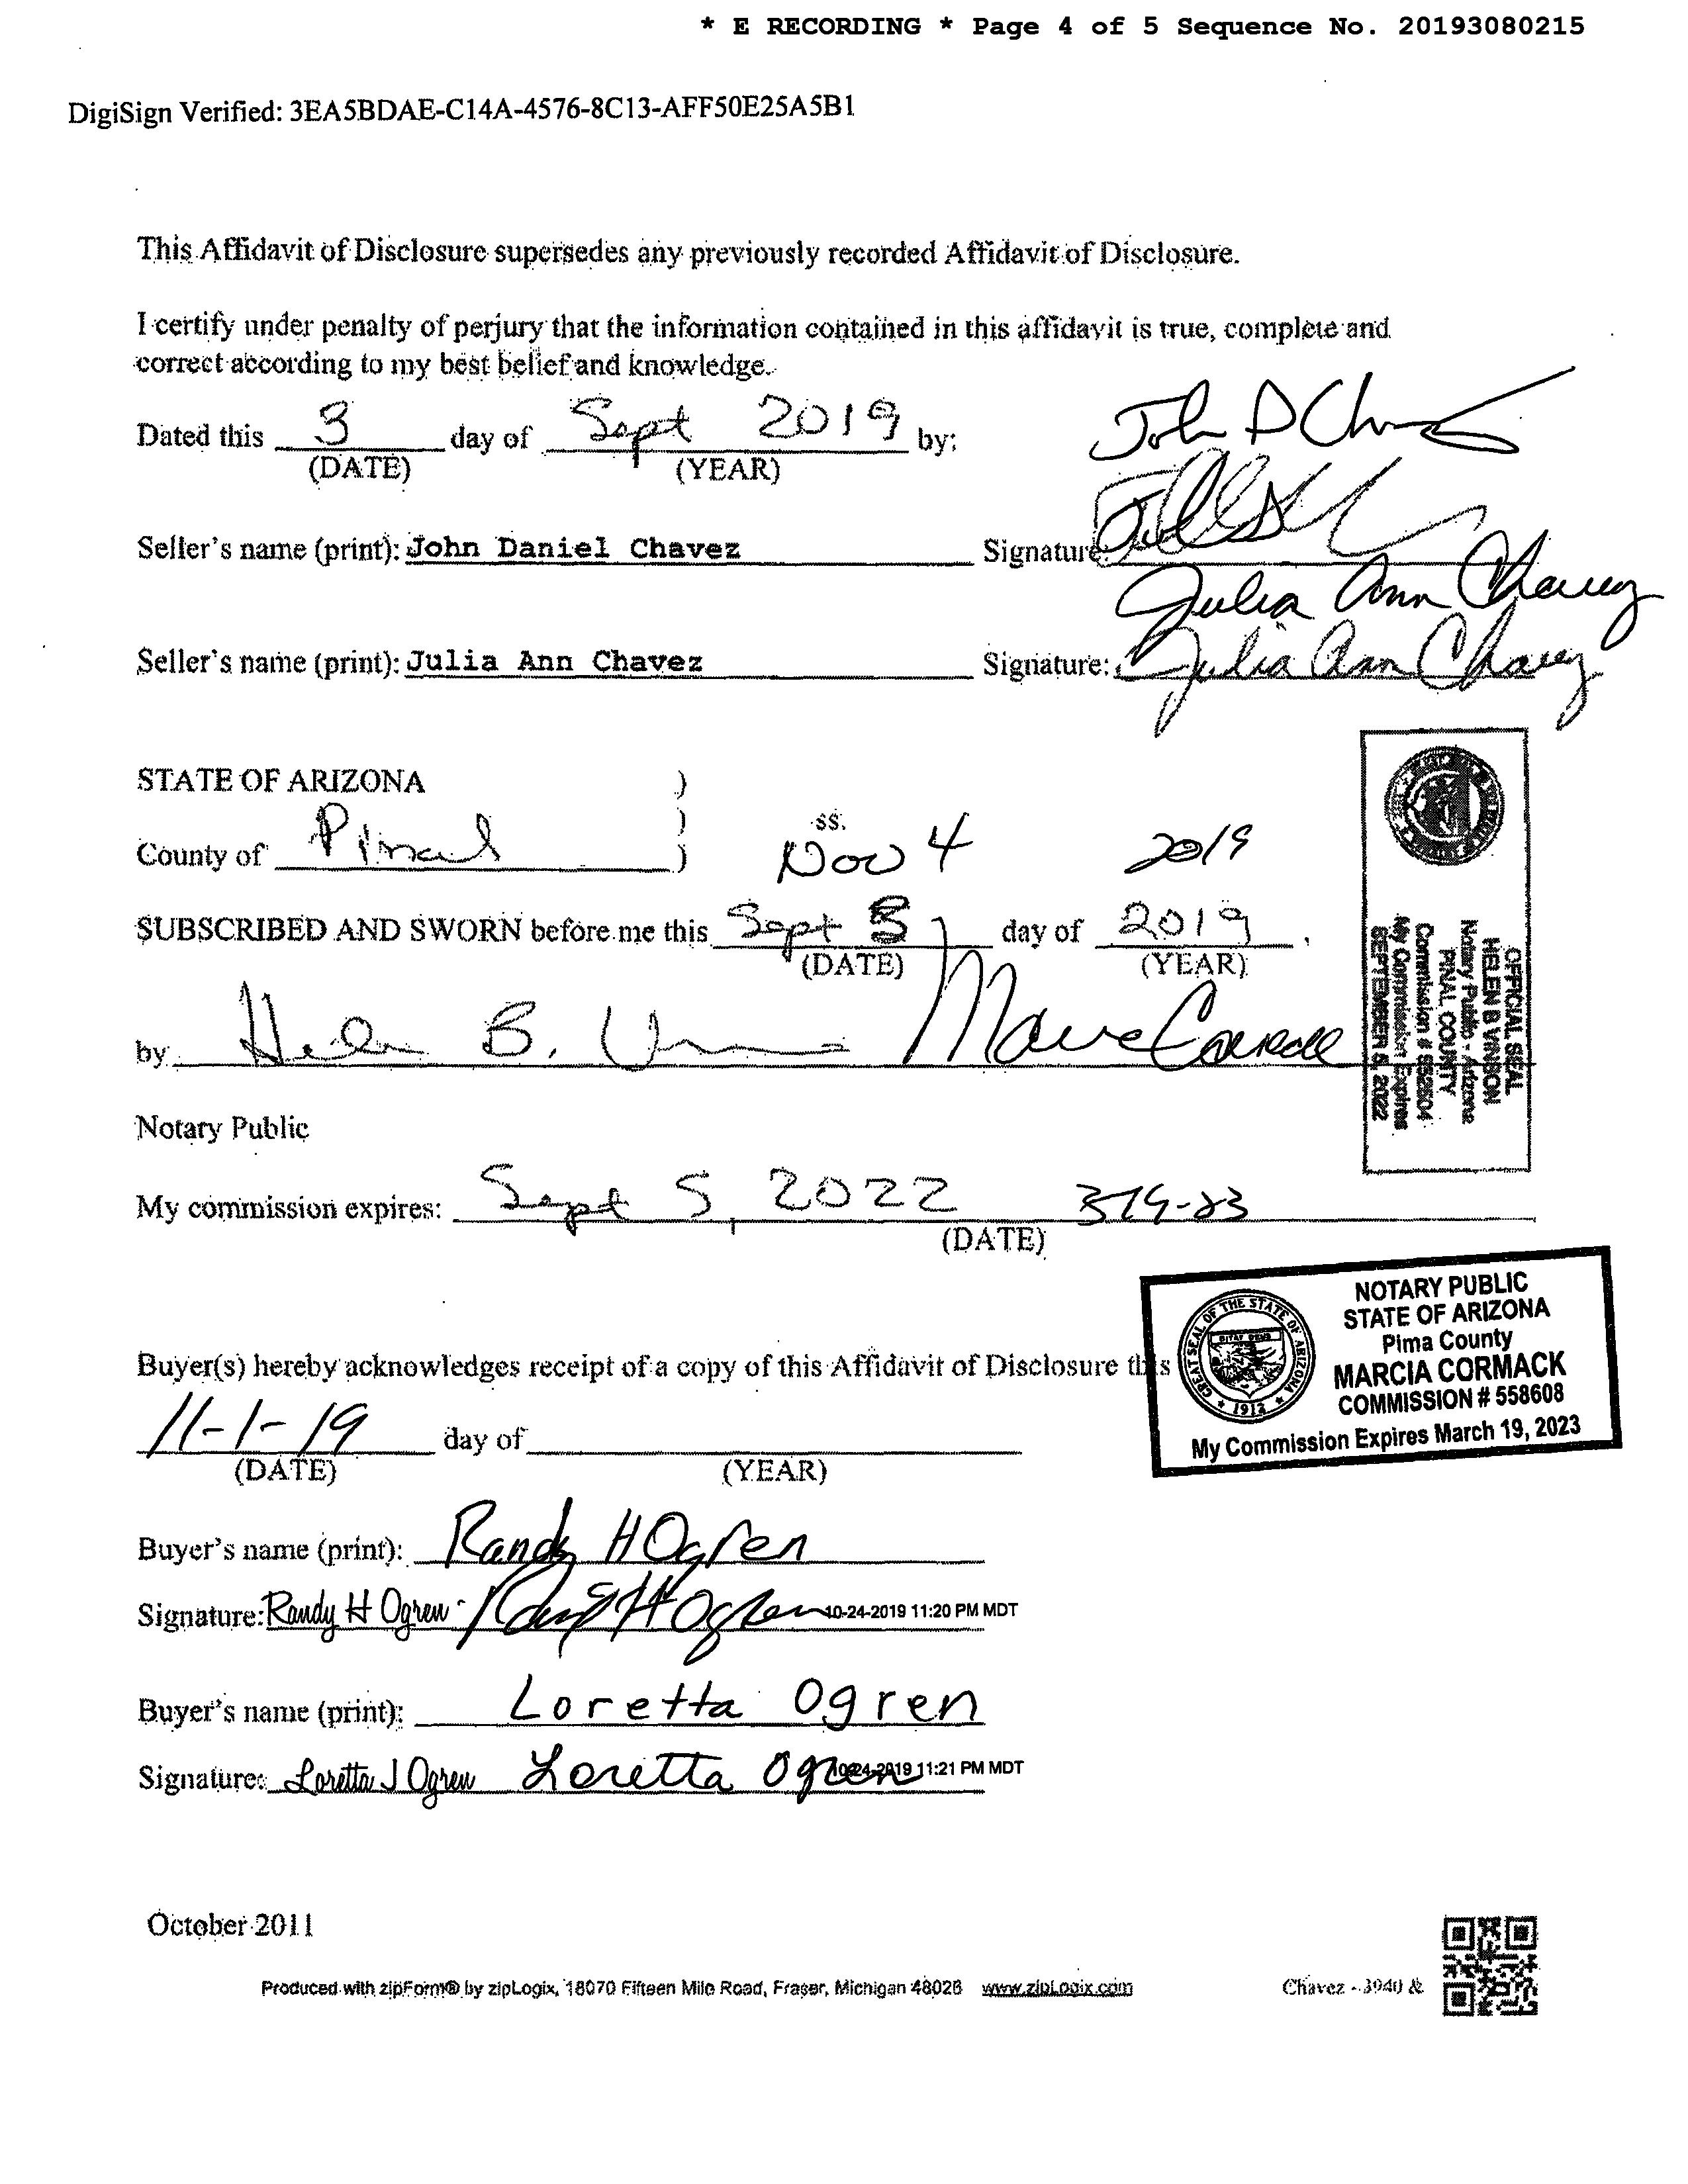 * E RECORDING * Page 4 of 5 Sequence No. 20193080215
DigiSign Verified: 3EA5BDAE-C14A-4576-8C13-AFF50E25A5B1
This Affidavit of Disclosure supersedes any previously recorded Affidavit of Disclosure.
I certify under penalty of perjury that the information contained in this affidavit is true, complete and
correct according to my best belief and knowledge.
John D Chavez
Dated this 3 day of Sept 2019 by:
(DATE) (YEAR)
Seller's name (print): John Daniel Chavez Signature:
Julia Ann Chavez
Seller's name (print): Julia Ann Chavez Signature: Julia Ann Chavez
STATE OF ARIZONA )
)
ss.
County of Pinal )
Nov 4 2019
SUBSCRIBED AND SWORN before me this Sept 3 day of 2019,
(DATE) (YEAR)
by Helen B. Vinson
OFFICIAL SEAL
HELEN B VINSON
Notary Public - Arizona
PINAL COUNTY
Commission # 552604
My Commission Expires
SEPTEMBER 5, 2022
Notary Public
My commission expires: Sept 5, 2022 3-19-23
(DATE)
NOTARY PUBLIC
STATE OF ARIZONA
Pima County
MARCIA CORMACK
COMMISSION # 558608
My Commission Expires March 19, 2023
GREAT SEAL OF THE STATE OF ARIZONA
DITAT DEUS
1912
Buyer(s) hereby acknowledges receipt of a copy of this Affidavit of Disclosure this
11-1-19 day of
(DATE) (YEAR)
Buyer's name (print): Randy H Ogren
Signature: Randy H Ogren Randy H Ogren 10-24-2019 11:20 PM MDT
Buyer's name (print): Loretta Ogren
Signature: Loretta J Ogren Loretta Ogren 10-24-2019 11:21 PM MDT
October 2011
Produced with zipForm® by zipLogix, 18070 Fifteen Mile Road, Fraser, Michigan 48026 www.zipLogix.com
Chavez - 3940 &